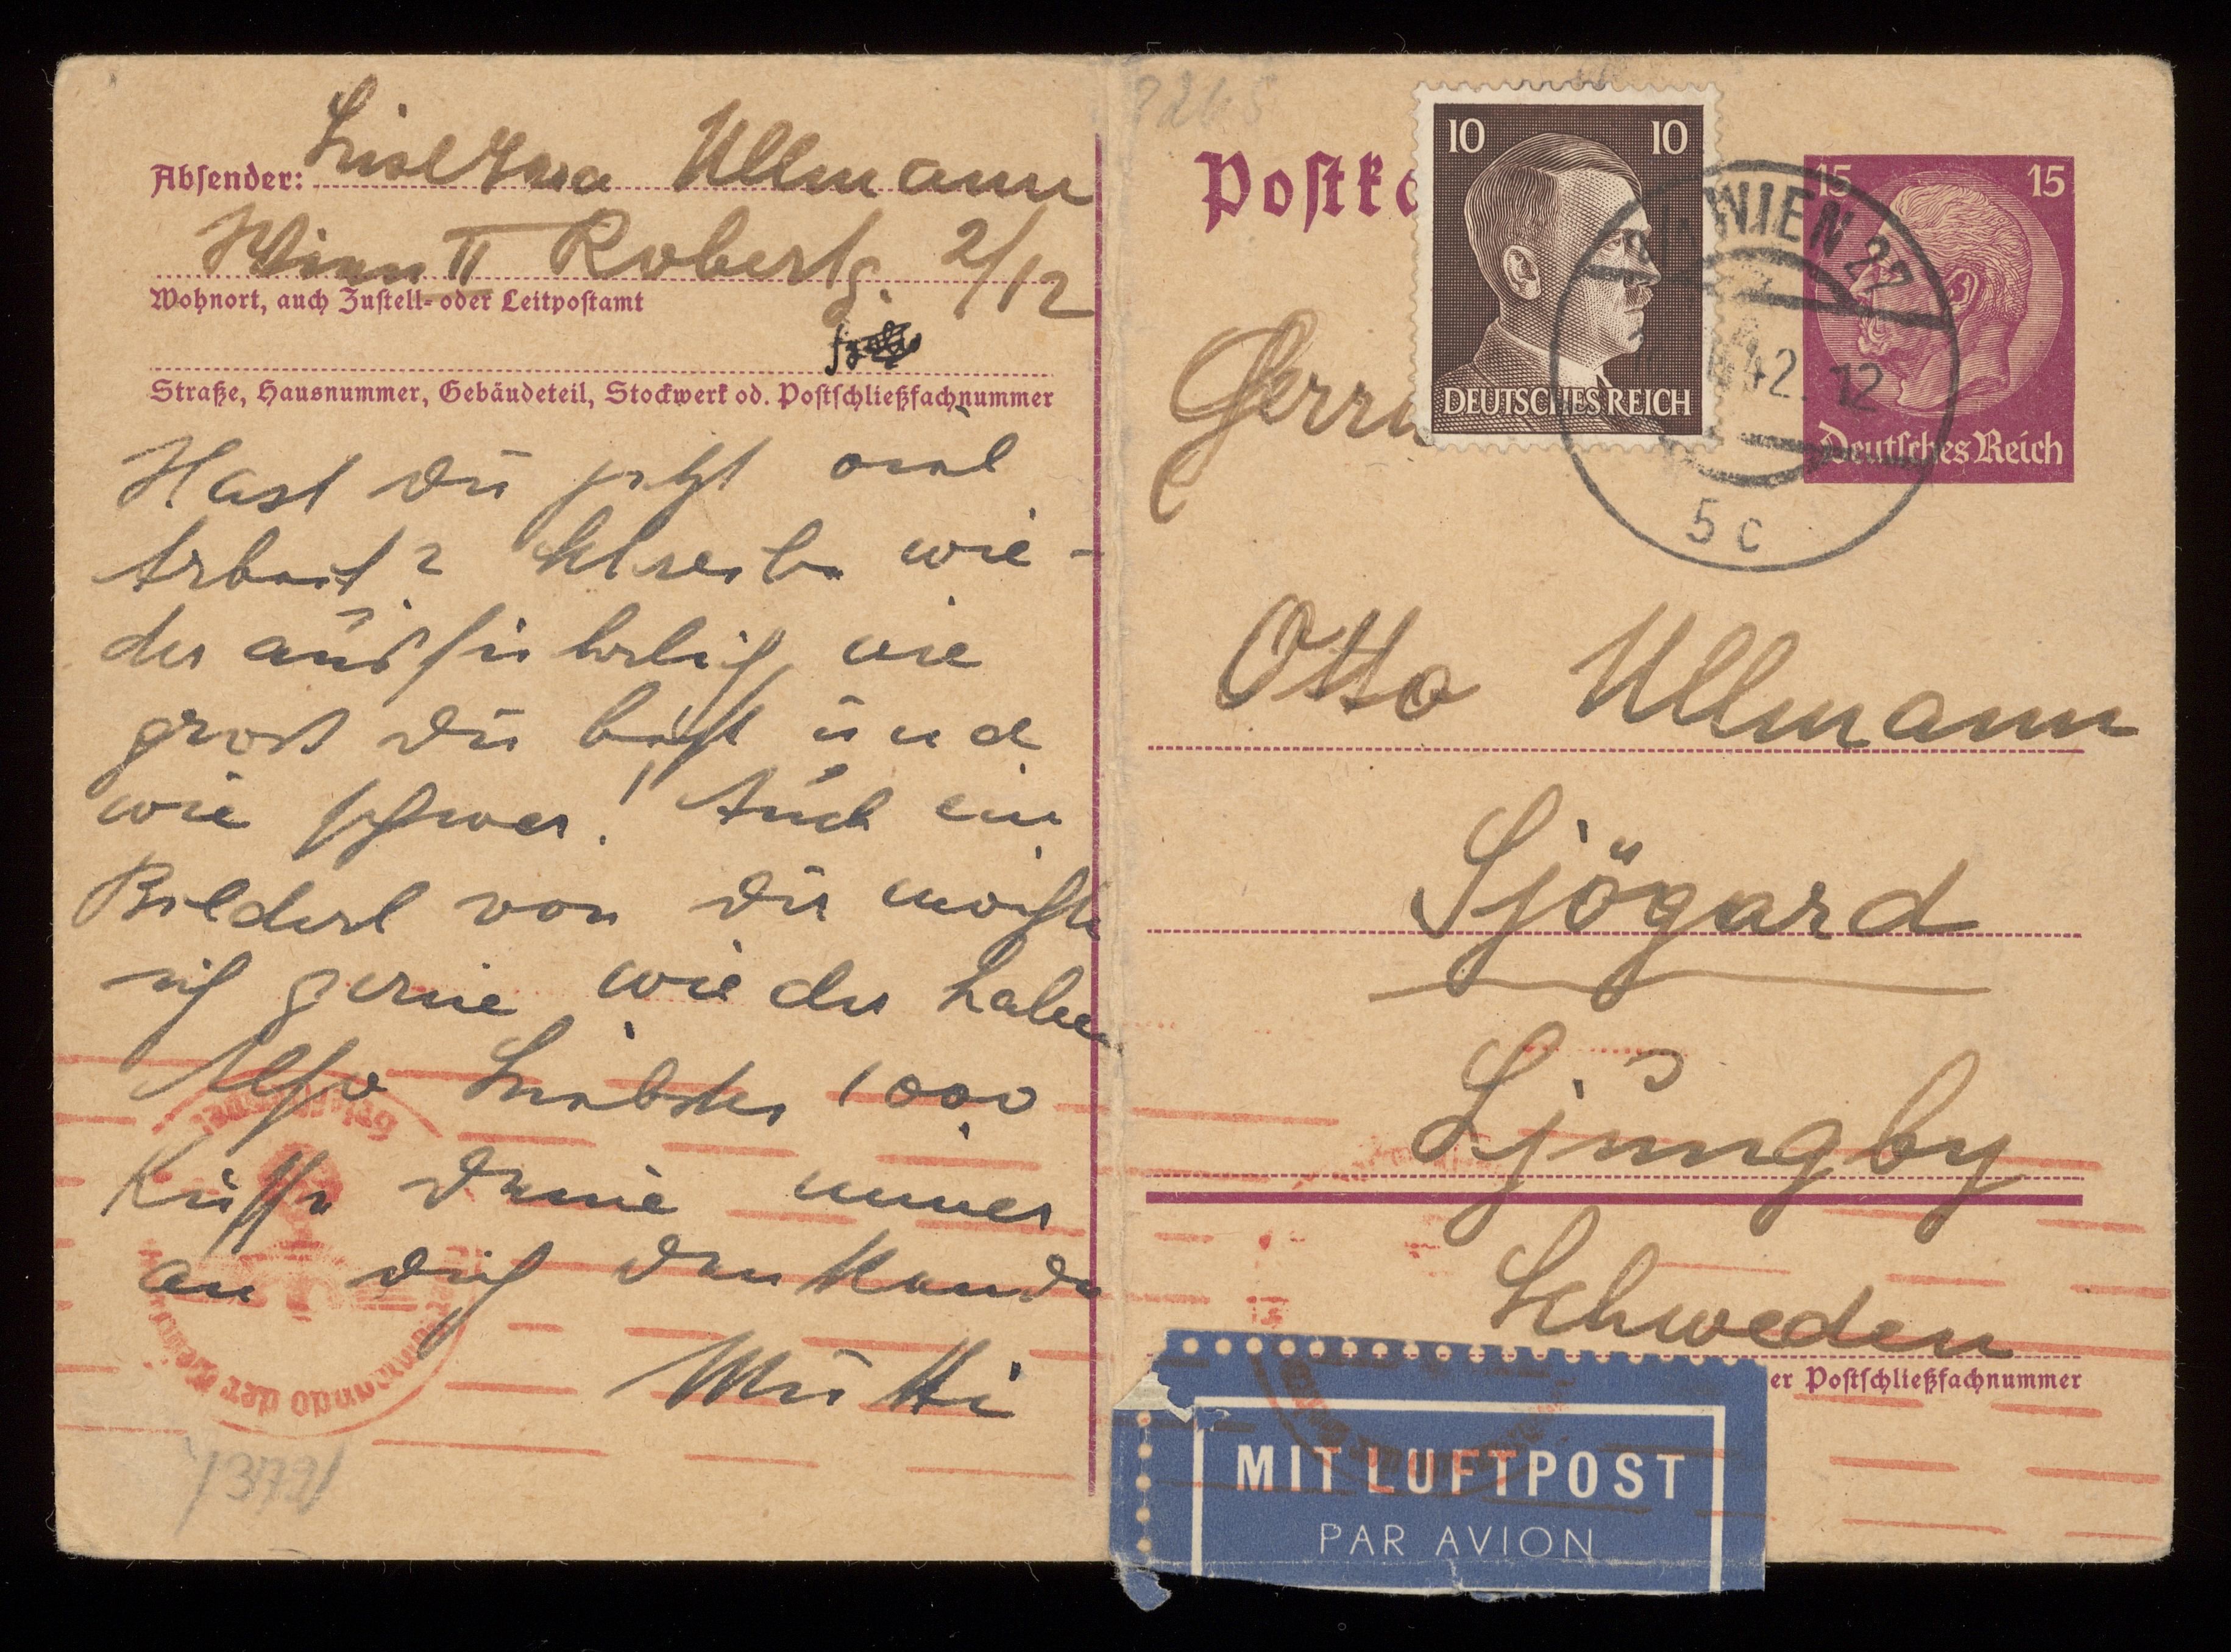 Absender: Ullmann
Wien II Robertg. 2/12
Wohnort, auch Zustell- oder Leitpostamt
Straße, Hausnummer, Gebäudeteil, Stockwerk od. Postschließfachnummer
Hast du jetzt viel
Arbeit? Schreibe wie-
der ausführlich, wie
groß du bist und
wie schwer! Auch ein
Bilderl von dir möchte
ich gerne wieder haben
Also Liebster 1000
Küsse deine immer
an dich denkende
Mutti
10 10
DEUTSCHES REICH
15 15
Deutsches Reich
WIEN 27
42.-12
5c
Otto Ullmann
Sjögard
Ljungby
Schweden
er Postschließfachnummer
MIT LUFTPOST
PAR AVION